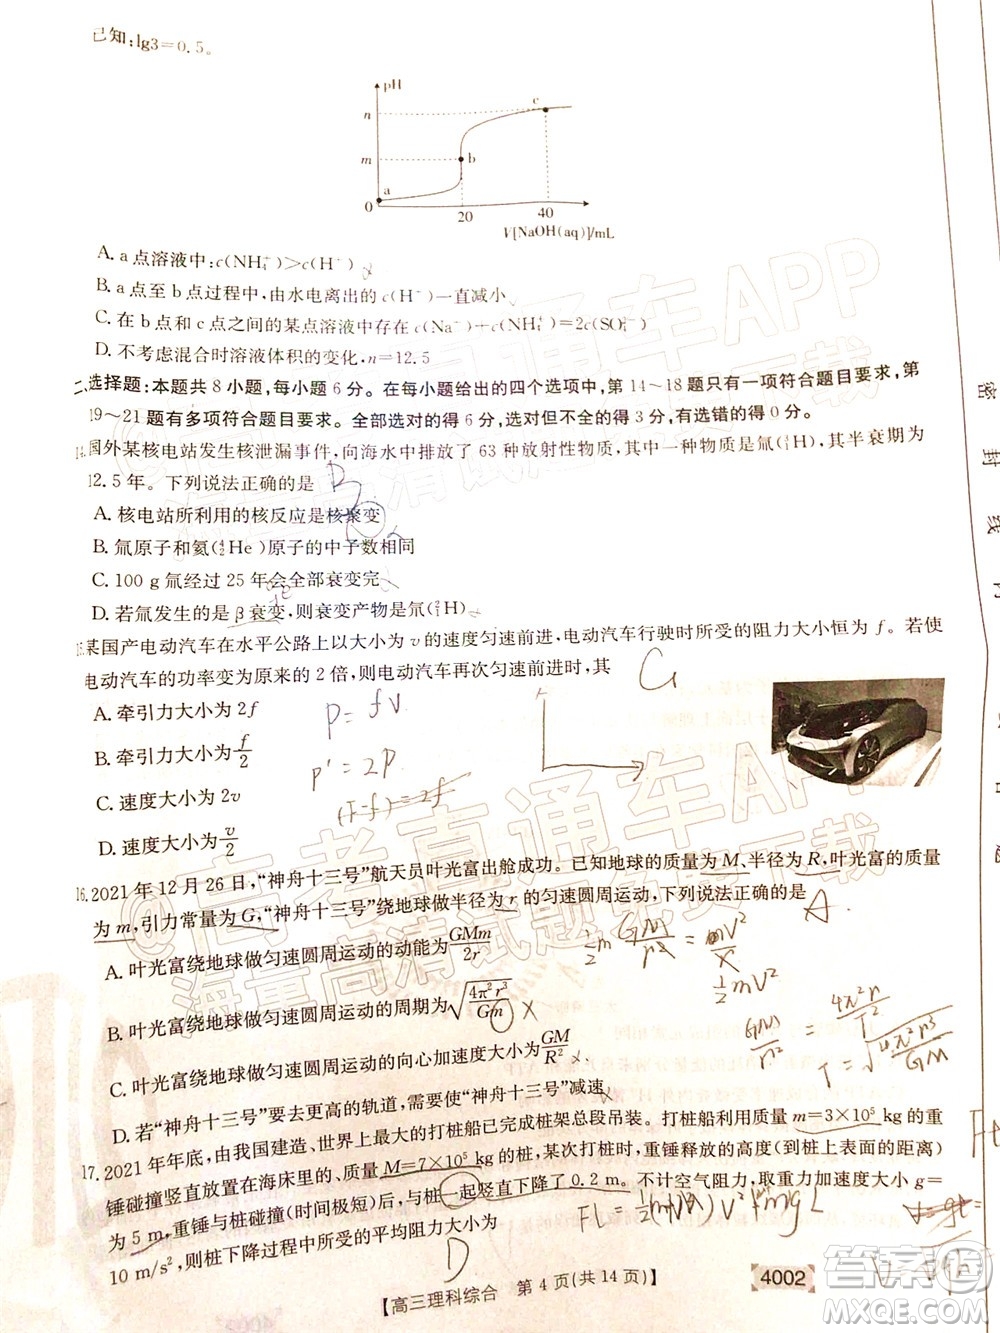 已知:lg3=0.5。
pH
n
c
m
b
a
0
20
40
V[NaOH(aq)]/mL
A. a 点溶液中:c(NH₄⁺)>c(H⁺)
B. a 点至 b 点过程中,由水电离出的 c(H⁺)一直减小
C. 在 b 点和 c 点之间的某点溶液中存在 c(Na⁺)+c(NH₄⁺)=2c(SO₄²⁻)
D. 不考虑混合时溶液体积的变化,n=12.5
二、选择题:本题共 8 小题,每小题 6 分。在每小题给出的四个选项中,第 14~18 题只有一项符合题目要求,第
19~21 题有多项符合题目要求。全部选对的得 6 分,选对但不全的得 3 分,有选错的得 0 分。
14.国外某核电站发生核泄漏事件,向海水中排放了 63 种放射性物质,其中一种物质是氚(³₁H),其半衰期为
12.5 年。下列说法正确的是 B
A. 核电站所利用的核反应是核聚变
B. 氚原子和氦(⁴₂He)原子的中子数相同
C. 100 g 氚经过 25 年会全部衰变完
D. 若氚发生的是 β 衰变,则衰变产物是氘(²₁H)
15.某国产电动汽车在水平公路上以大小为 v 的速度匀速前进,电动汽车行驶时所受的阻力大小恒为 f。若使
电动汽车的功率变为原来的 2 倍,则电动汽车再次匀速前进时,其 C
A. 牵引力大小为 2f
P = fv
B. 牵引力大小为 f/2
P' = 2P
C. 速度大小为 2v
(F-f) = 2f
D. 速度大小为 v/2
16.2021 年 12 月 26 日,“神舟十三号”航天员叶光富出舱成功。已知地球的质量为 M、半径为 R,叶光富的质量
为 m,引力常量为 G,“神舟十三号”绕地球做半径为 r 的匀速圆周运动,下列说法正确的是 A
A. 叶光富绕地球做匀速圆周运动的动能为 GMm/2r
½mv²
B. 叶光富绕地球做匀速圆周运动的周期为 √(4π²r³/Gm) ×
C. 叶光富绕地球做匀速圆周运动的向心加速度大小为 GM/R²
D. 若“神舟十三号”要去更高的轨道,需要使“神舟十三号”减速
17.2021 年年底,由我国建造、世界上最大的打桩船已完成桩架总段吊装。打桩船利用质量 m=3×10⁵ kg 的重
锤碰撞竖直放置在海床里的质量 M=7×10⁵ kg 的桩,某次打桩时,重锤释放的高度(到桩上表面的距离)
为 5 m,重锤与桩碰撞(时间极短)后,与桩一起竖直下降了 0.2 m。不计空气阻力,取重力加速度大小 g=
10 m/s²,则桩下降过程中所受的平均阻力大小为 D
【高三理科综合 第 4 页(共 14 页)】
4002
密
封
线
内
@高考直通车APP
海量高清试题免费下载
答案圈
MXQE.COM